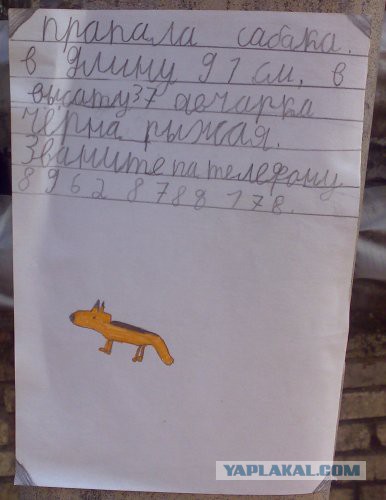 прапала сабака.
в длину 91 см, в
высату 37 авчарка
чёрна рыжая.
Званите па телефону
8 9 6 2 8 7 8 8 1 7 8.
YAPLAKAL.COM